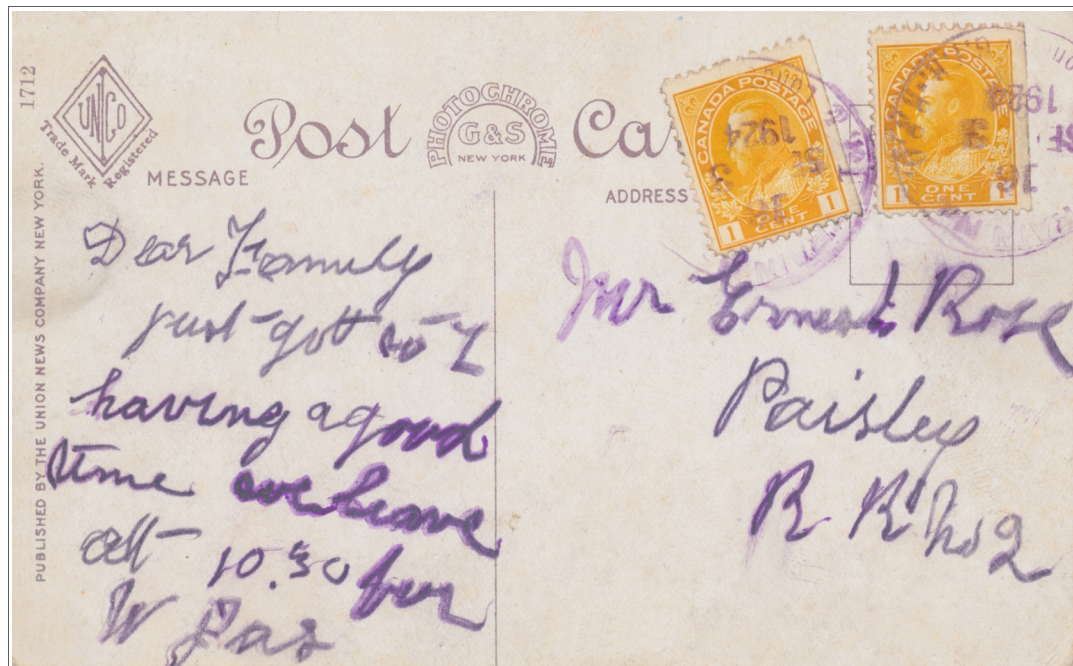 1712
UNCO
Trade Mark Registered
PUBLISHED BY THE UNION NEWS COMPANY NEW YORK.
Post Ca
PHOTOCHROME
G&S
NEW YORK
MESSAGE
ADDRESS
CANADA POSTAGE
1924
ONE
CENT
1 1
CANADA POSTAGE
1924
16
ONE
CENT
1 1
Dear Family
just got to
having a good
time we leave
att 10.30 for
W
Mr Ernest Rose
Paisley
R R No 2